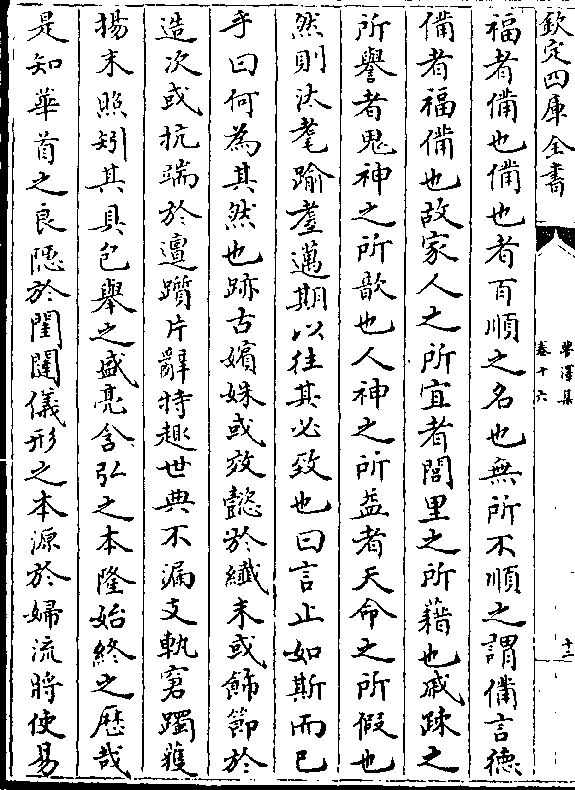 欽定四庫全書
卷十六
十二
福者備也備也者百順之名也無所不順之謂備言德
備者福備也故家人之所宜者閭里之所藉也戚踈之
所譽者鬼神之所歆也人神之所益者天命之所假也
然則汰耄踰耋邁期以往其必致也曰言止如斯而已
乎曰何為其然也跡古媍姝或效懿於纖末或飾節於
造次或抗端於邅躓片辭特趣世典不漏支軌窘躅獲
揚末照矧其具包舉之盛亮含弘之本隆始終之歷哉
是知華首之良隱於閨闥儀形之本源於婦流將使易